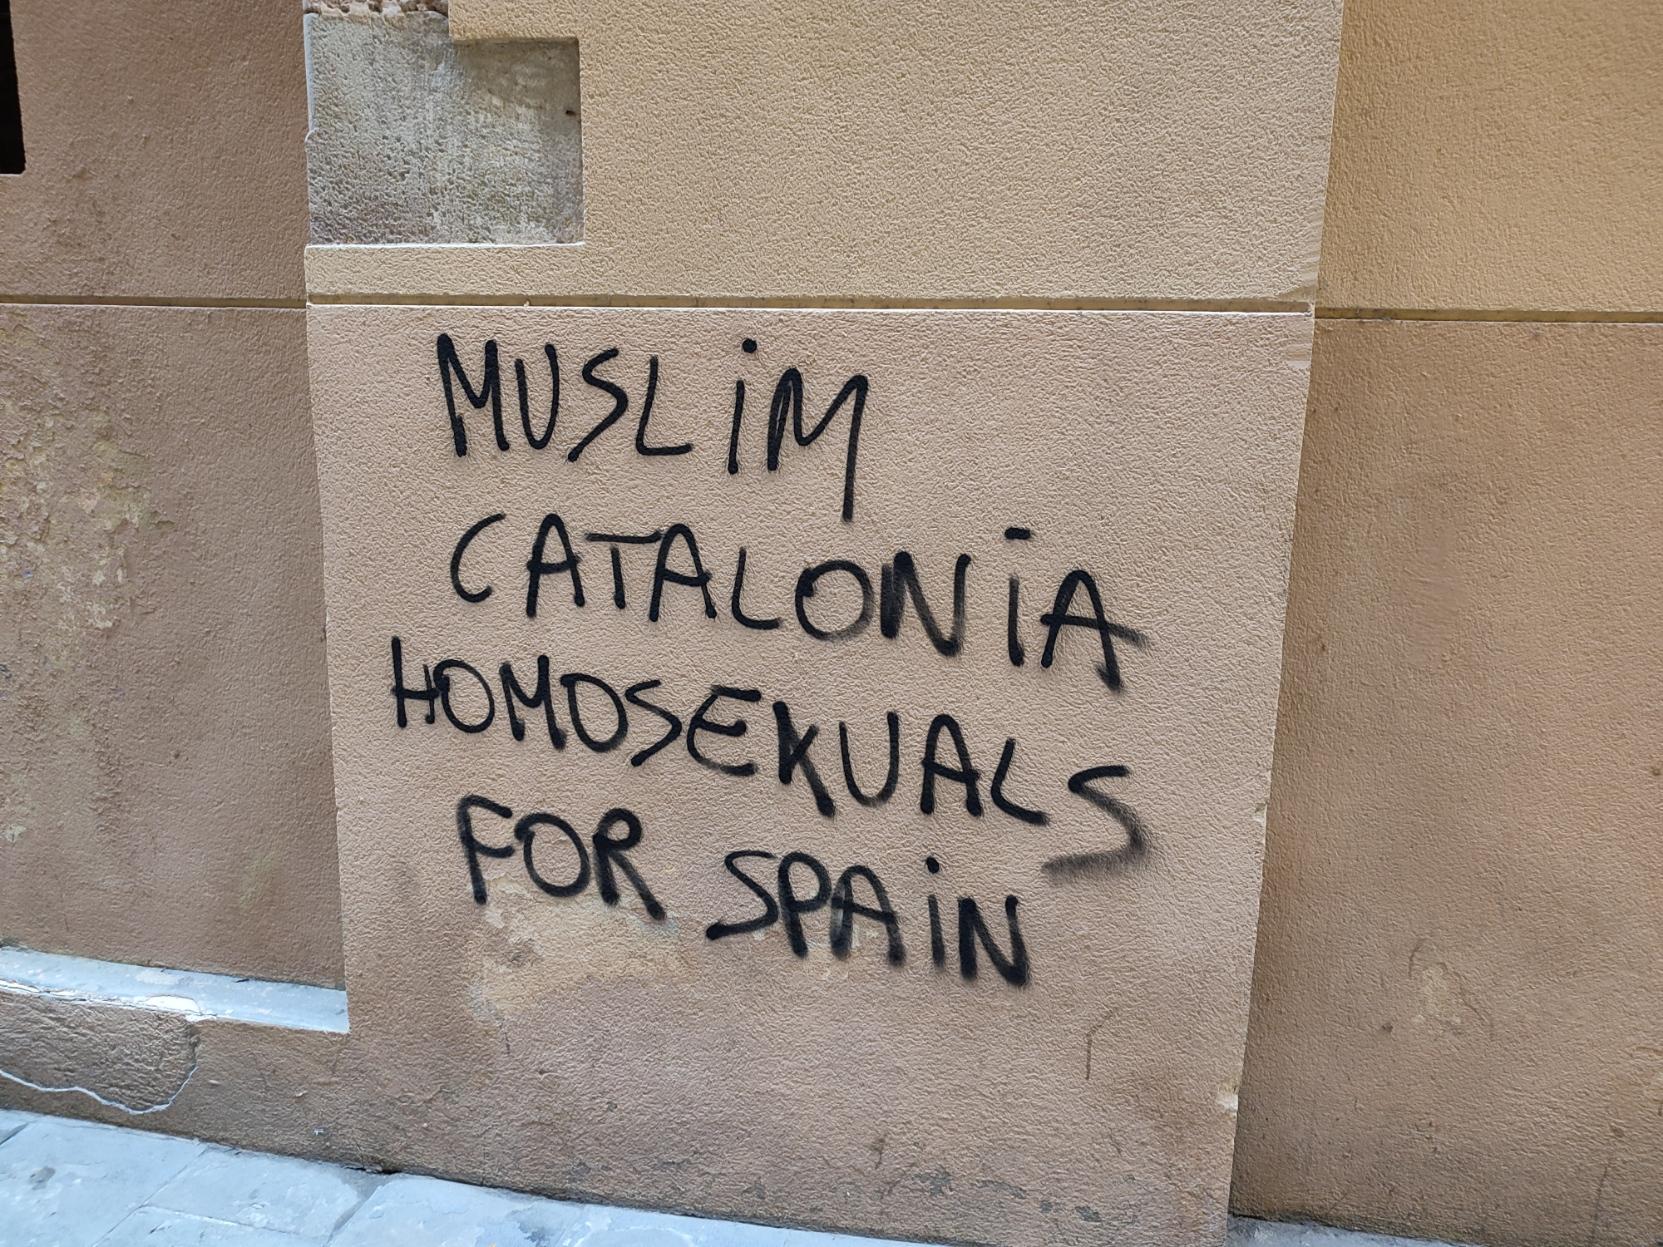 MUSLiM
CATALONiA
HOMOSEXUALS
FOR SPAiN